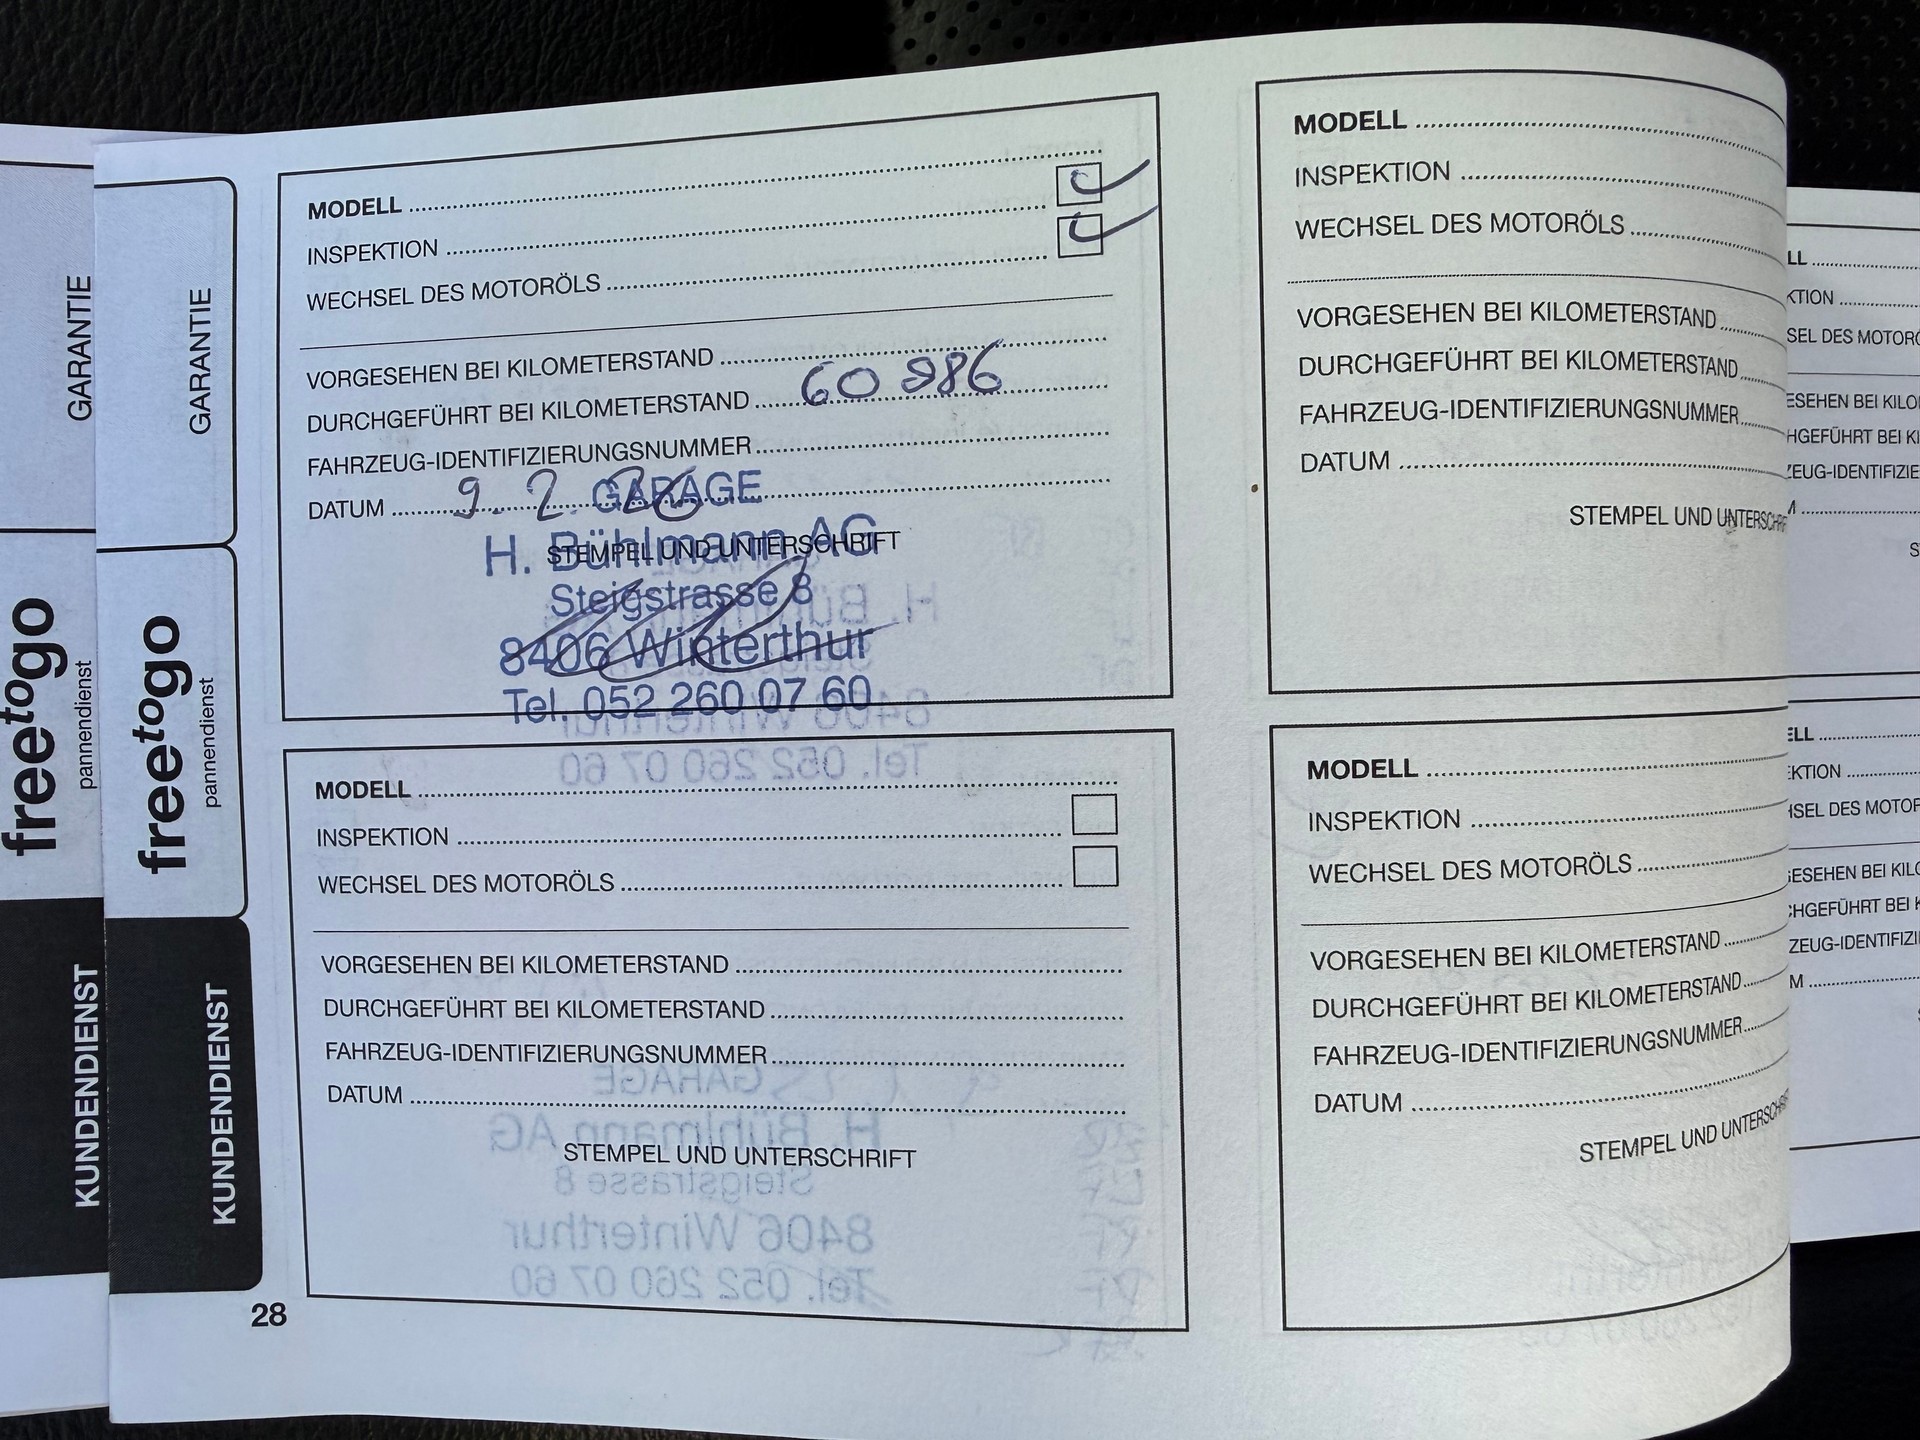 GARANTIE
freetogo
pannendienst
KUNDENDIENST
GARANTIE
freetogo
pannendienst
KUNDENDIENST
MODELL
INSPEKTION
WECHSEL DES MOTORÖLS
VORGESEHEN BEI KILOMETERSTAND
DURCHGEFÜHRT BEI KILOMETERSTAND 60 986
FAHRZEUG-IDENTIFIZIERUNGSNUMMER
DATUM 9. 2. 26
STEMPEL UND UNTERSCHRIFT
GARAGE
H. Bühlmann AG
Steigstrasse 8
8406 Winterthur
Tel. 052 260 07 60
MODELL
INSPEKTION
WECHSEL DES MOTORÖLS
VORGESEHEN BEI KILOMETERSTAND
DURCHGEFÜHRT BEI KILOMETERSTAND
FAHRZEUG-IDENTIFIZIERUNGSNUMMER
DATUM
STEMPEL UND UNTERSCHRIFT
28
MODELL
INSPEKTION
WECHSEL DES MOTORÖLS
VORGESEHEN BEI KILOMETERSTAND
DURCHGEFÜHRT BEI KILOMETERSTAND
FAHRZEUG-IDENTIFIZIERUNGSNUMMER
DATUM
STEMPEL UND UNTERSCHR
MODELL
INSPEKTION
WECHSEL DES MOTORÖLS
VORGESEHEN BEI KILOMETERSTAND
DURCHGEFÜHRT BEI KILOMETERSTAND
FAHRZEUG-IDENTIFIZIERUNGSNUMMER
DATUM
STEMPEL UND UNTERSCHR
LL
KTION
SEL DES MOTORÖ
ESEHEN BEI KILO
HGEFÜHRT BEI KI
ZEUG-IDENTIFIZIE
ELL
EKTION
HSEL DES MOTOR
GESEHEN BEI KILO
CHGEFÜHRT BEI K
ZEUG-IDENTIFIZI
M